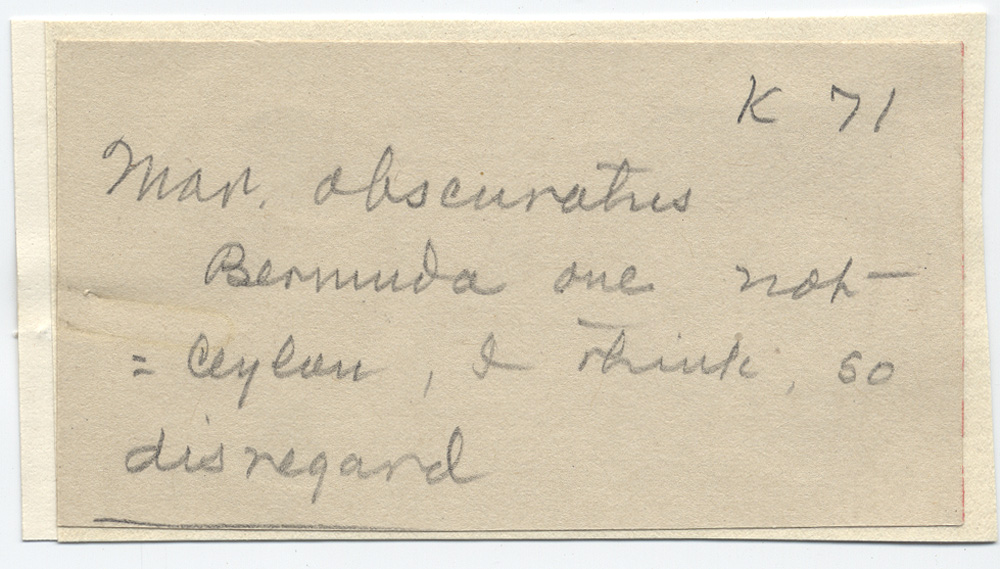 K 71
Mar. obscuratus
Bermuda one not
= Ceylon, I think, so
disregard